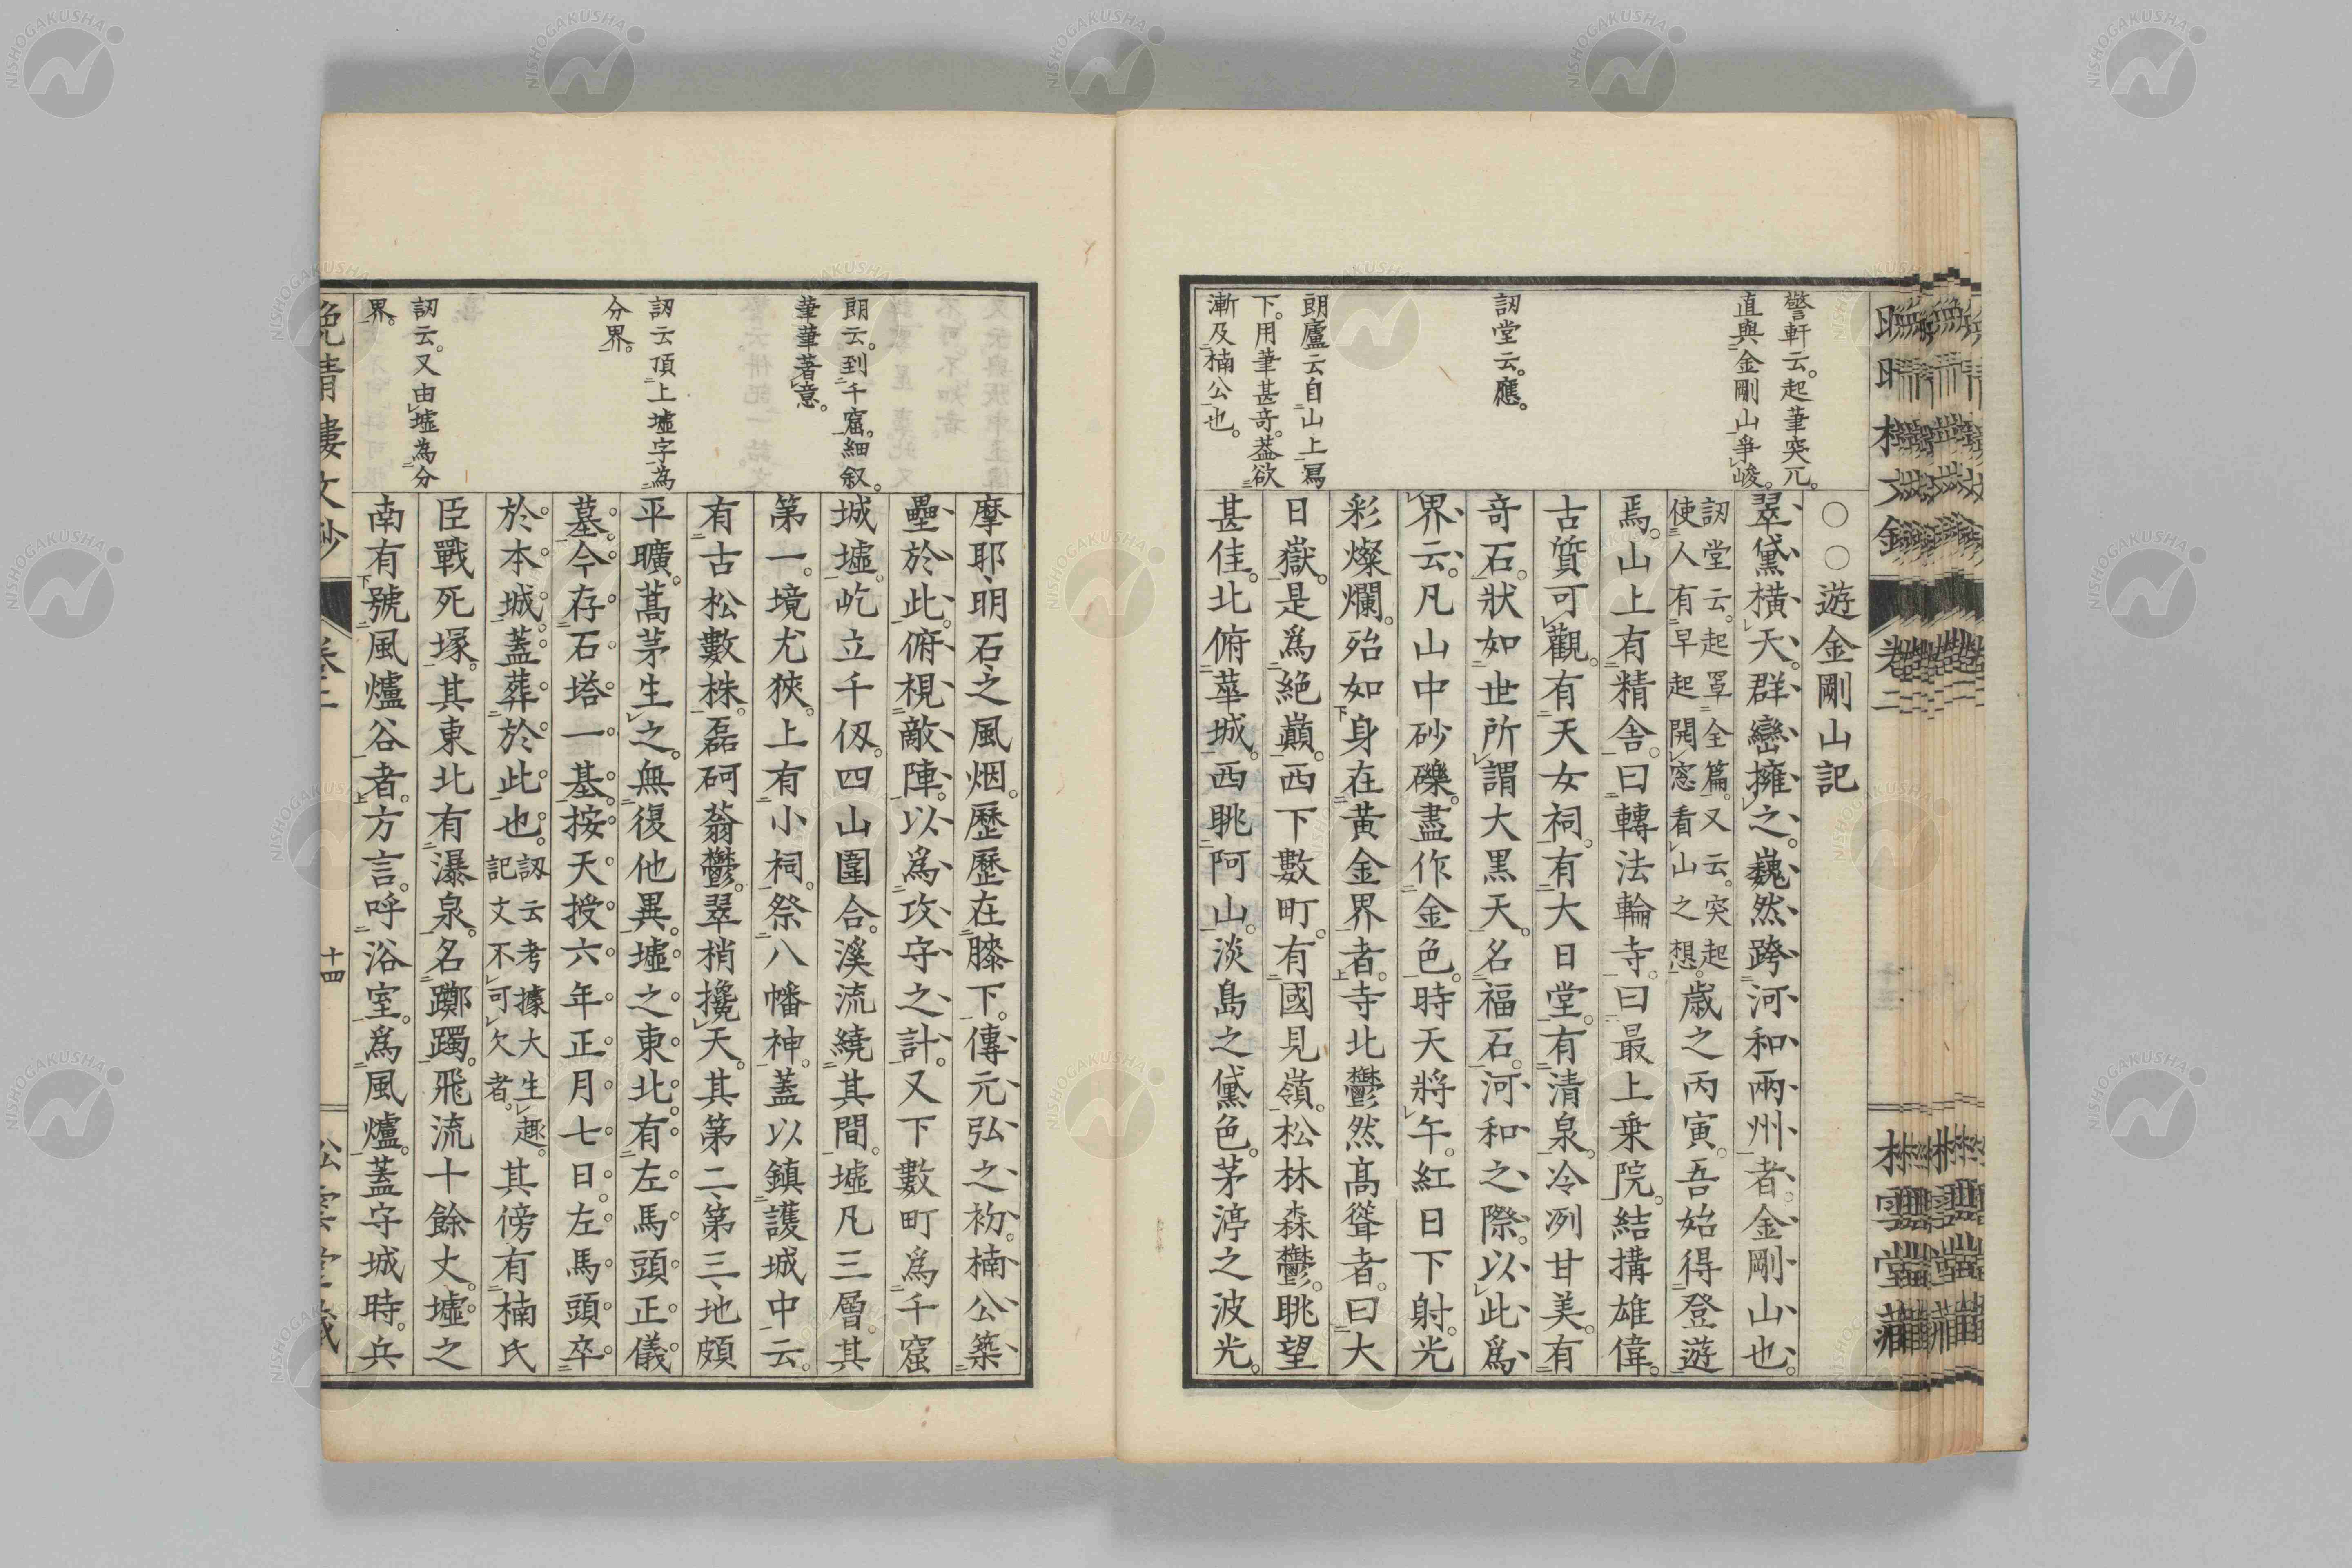 警軒云。起筆突兀。
直與金剛山爭峻。
訒堂云。應。
朗廬云自山上寫
下。用筆甚奇。蓋欲
漸及楠公也。
○○遊金剛山記
翠黛橫天。群巒擁之。巍然跨河和兩州者。金剛山也。
訒堂云。起罩全篇。又云。突起
使人有早起開窓看山之想。
歳之丙寅。吾始得登遊
焉。山上有精舍。曰轉法輪寺。曰最上乗院。結搆雄偉。
古質可觀。有天女祠。有大日堂。有清泉。冷冽甘美。有
奇石。狀如世所謂大黑天。名福石。河和之際。以此爲
界云。凡山中砂礫。盡作金色。時天將午。紅日下射。光
彩燦爛。殆如身在黃金界者。寺北鬱然高聳者。曰大
日嶽。是爲絕巔。西下數町。有國見嶺。松林森鬱。眺望
甚佳。北俯華城。西眺阿山。淡島之黛色。茅渟之波光。
朗云。到千窟。細叙。
筆筆著意。
訒云頂上墟字為
分界。
訒云。又由墟為分
界。
摩耶、明石之風烟。歷歷在膝下。傳元弘之初。楠公築
壘於此。俯視敵陣。以爲攻守之計。又下數町爲千窟
城墟。屹立千仭。四山圍合。溪流繞其間。墟凡三層。其
第一。境尤狹。上有小祠。祭八幡神。蓋以鎮護城中云。
有古松數株。磊砢蓊鬱。翠梢攙天。其第二、第三、地頗
平曠。蒿茅生之。無復他異。墟之東北。有左馬頭正儀
墓。今存石塔一基。按天授六年正月七日。左馬頭卒
於本城。蓋葬於此也。
訒云考據大生趣。
記文不可欠者。
其傍有楠氏
臣戰死塚。其東北有瀑泉。名躑躅。飛流十餘丈。墟之
南有號風爐谷者。方言。呼浴室。爲風爐。蓋守城時。兵
晩晴樓文鈔
卷二
十四
松雲堂藏